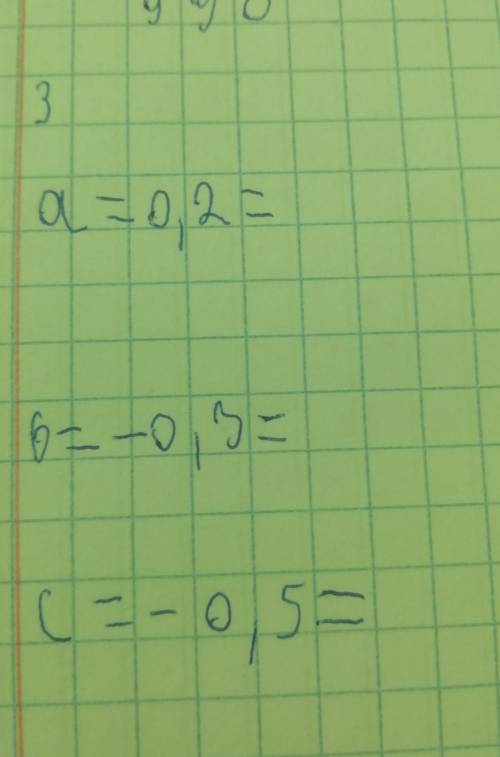 3
a = 0,2 =
б = -0,3 =
c = - 0,5 =